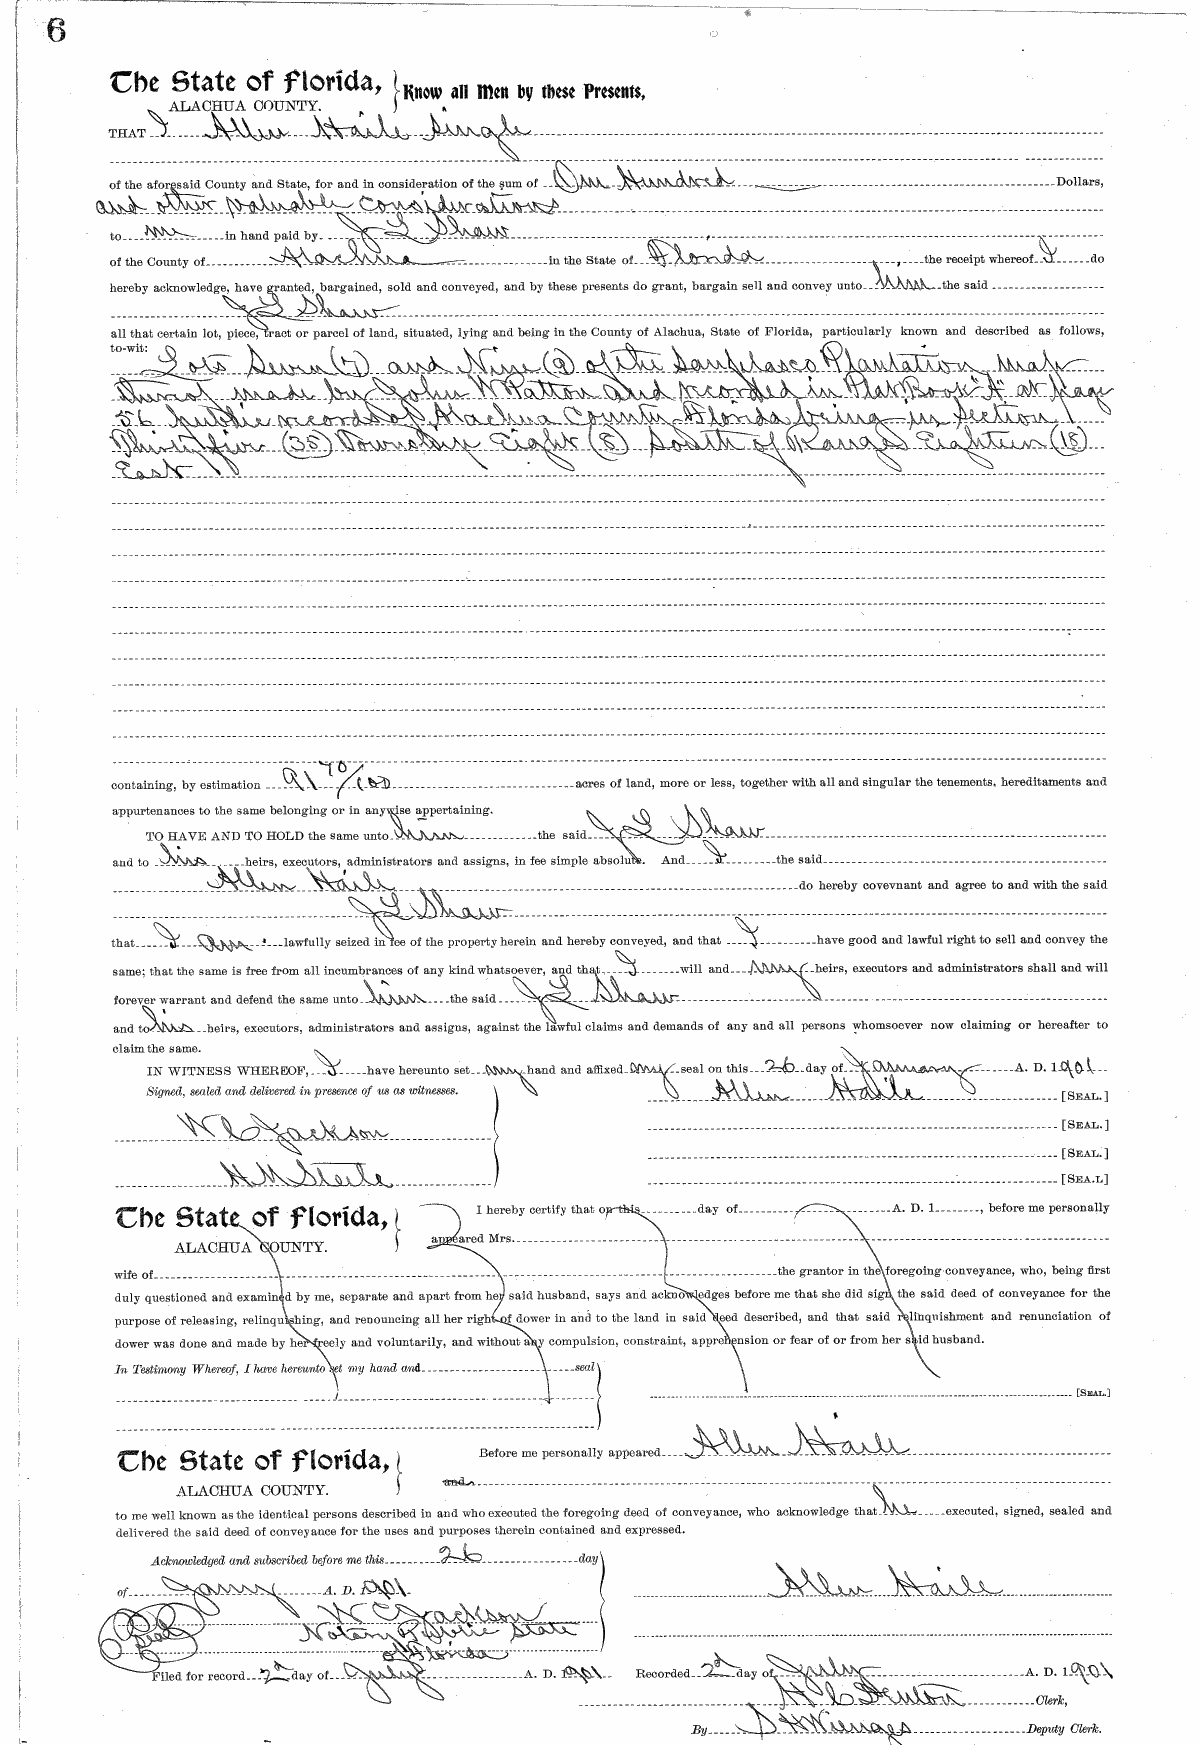 6
The State of Florida, Know all Men by these Presents,
ALACHUA COUNTY.
THAT I Allen Haile Single
of the aforesaid County and State, for and in consideration of the sum of One Hundred Dollars,
and other valuable considerations
to me in hand paid by J L Shaw
of the County of Alachua in the State of Florida the receipt whereof I do
hereby acknowledge, have granted, bargained, sold and conveyed, and by these presents do grant, bargain sell and convey unto him the said
J L Shaw
all that certain lot, piece, tract or parcel of land, situated, lying and being in the County of Alachua, State of Florida, particularly known and described as follows,
to-wit: Lots Seven (7) and Nine (9) of the Sanfelasco Plantation, map
thereof made by John W Patton and recorded in Plat Book "A" at page
56 public records of Alachua County Florida being in Section
Thirty five (35) Township Eight (8) South of Range Eighteen (18)
East
containing, by estimation 91 70/100 acres of land, more or less, together with all and singular the tenements, hereditaments and
appurtenances to the same belonging or in anywise appertaining.
TO HAVE AND TO HOLD the same unto him the said J L Shaw
and to his heirs, executors, administrators and assigns, in fee simple absolute. And I the said
Allen Haile do hereby covevnant and agree to and with the said
J L Shaw
that I am lawfully seized in fee of the property herein and hereby conveyed, and that I have good and lawful right to sell and convey the
same; that the same is free from all incumbrances of any kind whatsoever, and that I will and my heirs, executors and administrators shall and will
forever warrant and defend the same unto him the said J L Shaw
and to his heirs, executors, administrators and assigns, against the lawful claims and demands of any and all persons whomsoever now claiming or hereafter to
claim the same.
IN WITNESS WHEREOF, I have hereunto set my hand and affixed my seal on this 26 day of January A. D. 1901
Signed, sealed and delivered in presence of us as witnesses. Allen Haile [SEAL.]
W C Jackson [SEAL.]
[SEAL.]
H M Steele [SEA.L]
The State of Florida, I hereby certify that on this day of A. D. 1 , before me personally
ALACHUA COUNTY. appeared Mrs.
wife of the grantor in the foregoing conveyance, who, being first
duly questioned and examined by me, separate and apart from her said husband, says and acknowledges before me that she did sign the said deed of conveyance for the
purpose of releasing, relinquishing, and renouncing all her right of dower in and to the land in said deed described, and that said relinquishment and renunciation of
dower was done and made by her freely and voluntarily, and without any compulsion, constraint, apprehension or fear of or from her said husband.
In Testimony Whereof, I have hereunto set my hand and seal
[SEAL.]
The State of Florida, Before me personally appeared Allen Haile
ALACHUA COUNTY. and
to me well known as the identical persons described in and who executed the foregoing deed of conveyance, who acknowledge that he executed, signed, sealed and
delivered the said deed of conveyance for the uses and purposes therein contained and expressed.
Acknowledged and subscribed before me this 26 day
of Jany A. D. 1901 Allen Haile
W C Jackson
Seal Notary Public State
of Florida
Filed for record 2d day of July A. D. 1901 Recorded 2d day of July A. D. 1901
H C Denton Clerk,
By S H Wienges Deputy Clerk.